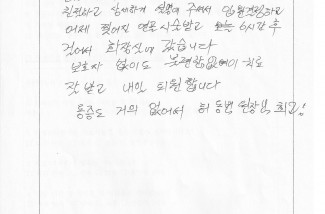 친절하고 상세하게 설명해 주셔서 입원결정하고
어제 찢어진 연골 시술받고 6시간 후
걸어서 화장실에 갔습니다
보호자 없이도 불편함없이 치료
잘 받고 내일 퇴원합니다
통증도 거의 없어서 허동범 원장님 최고!